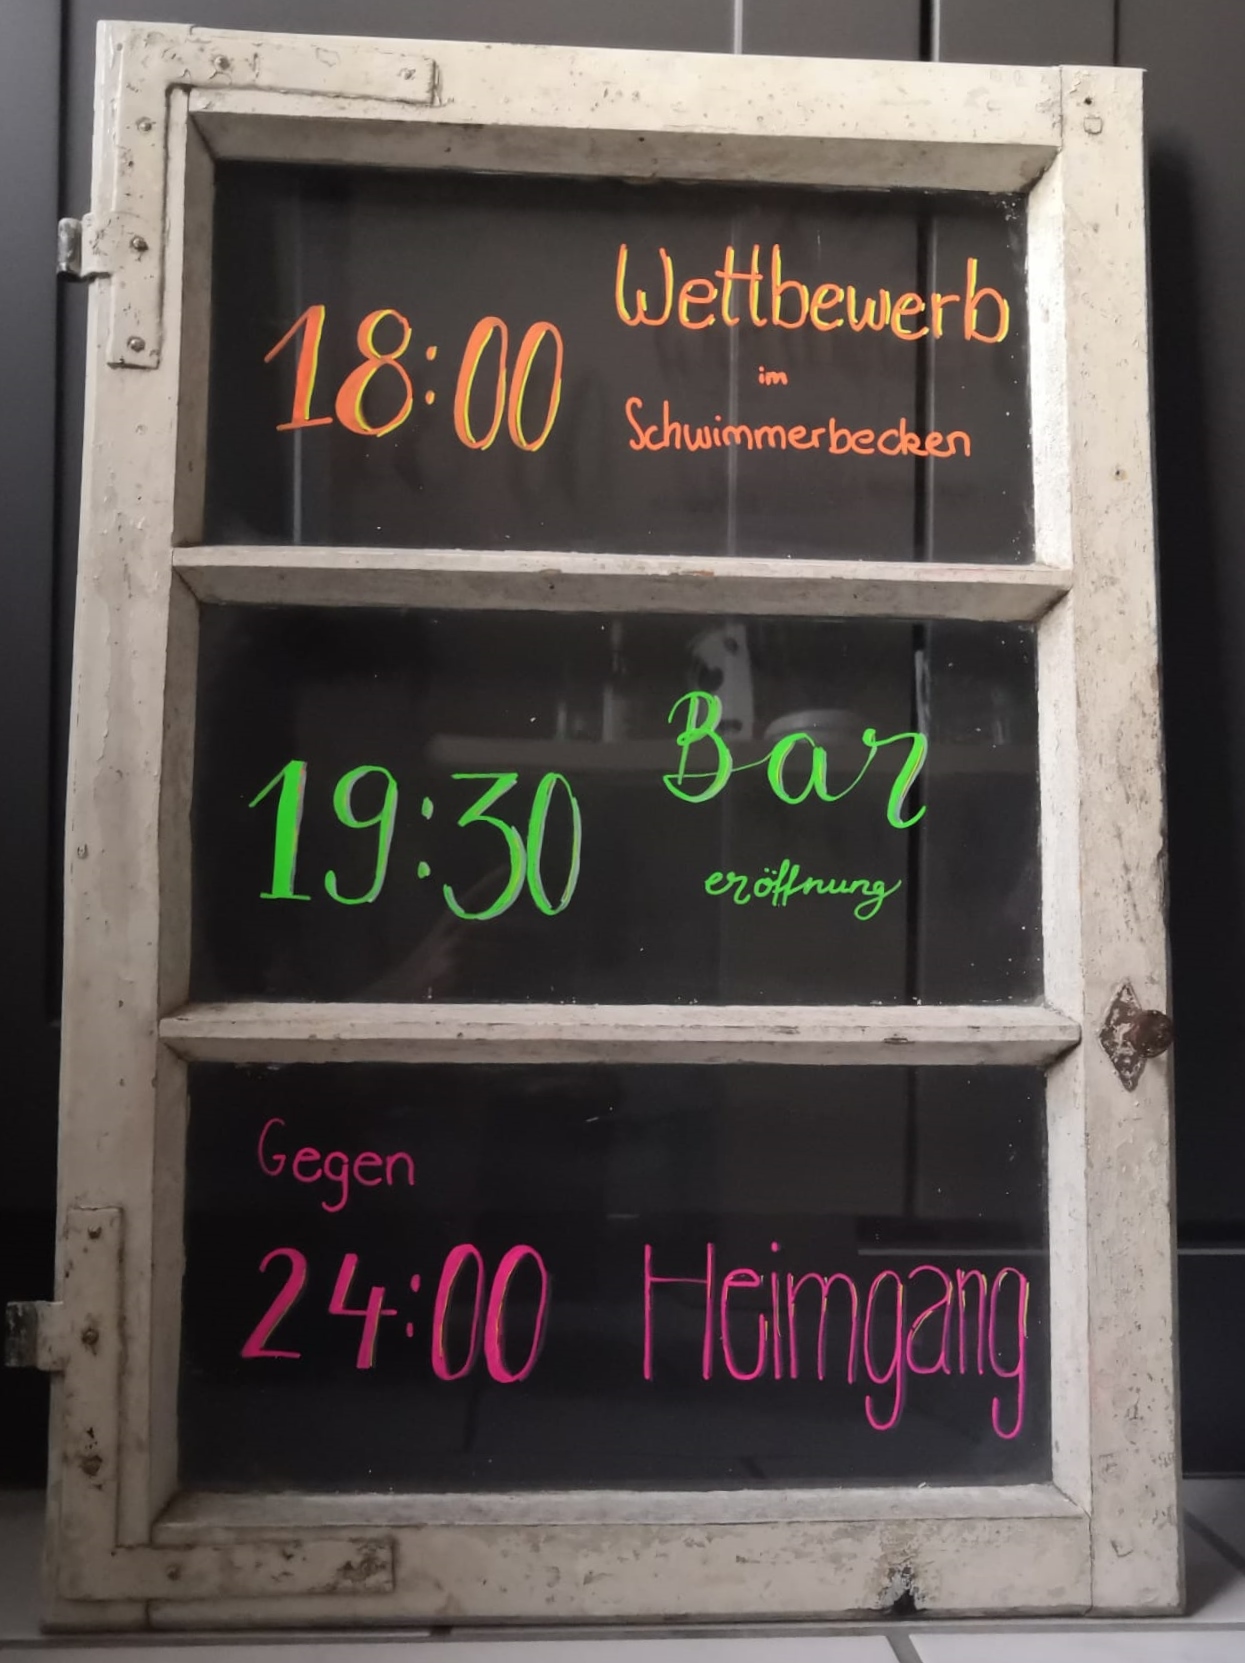 18:00 Wettbewerb
im
Schwimmerbecken
19:30 Bar
eröffnung
Gegen
24:00 Heimgang